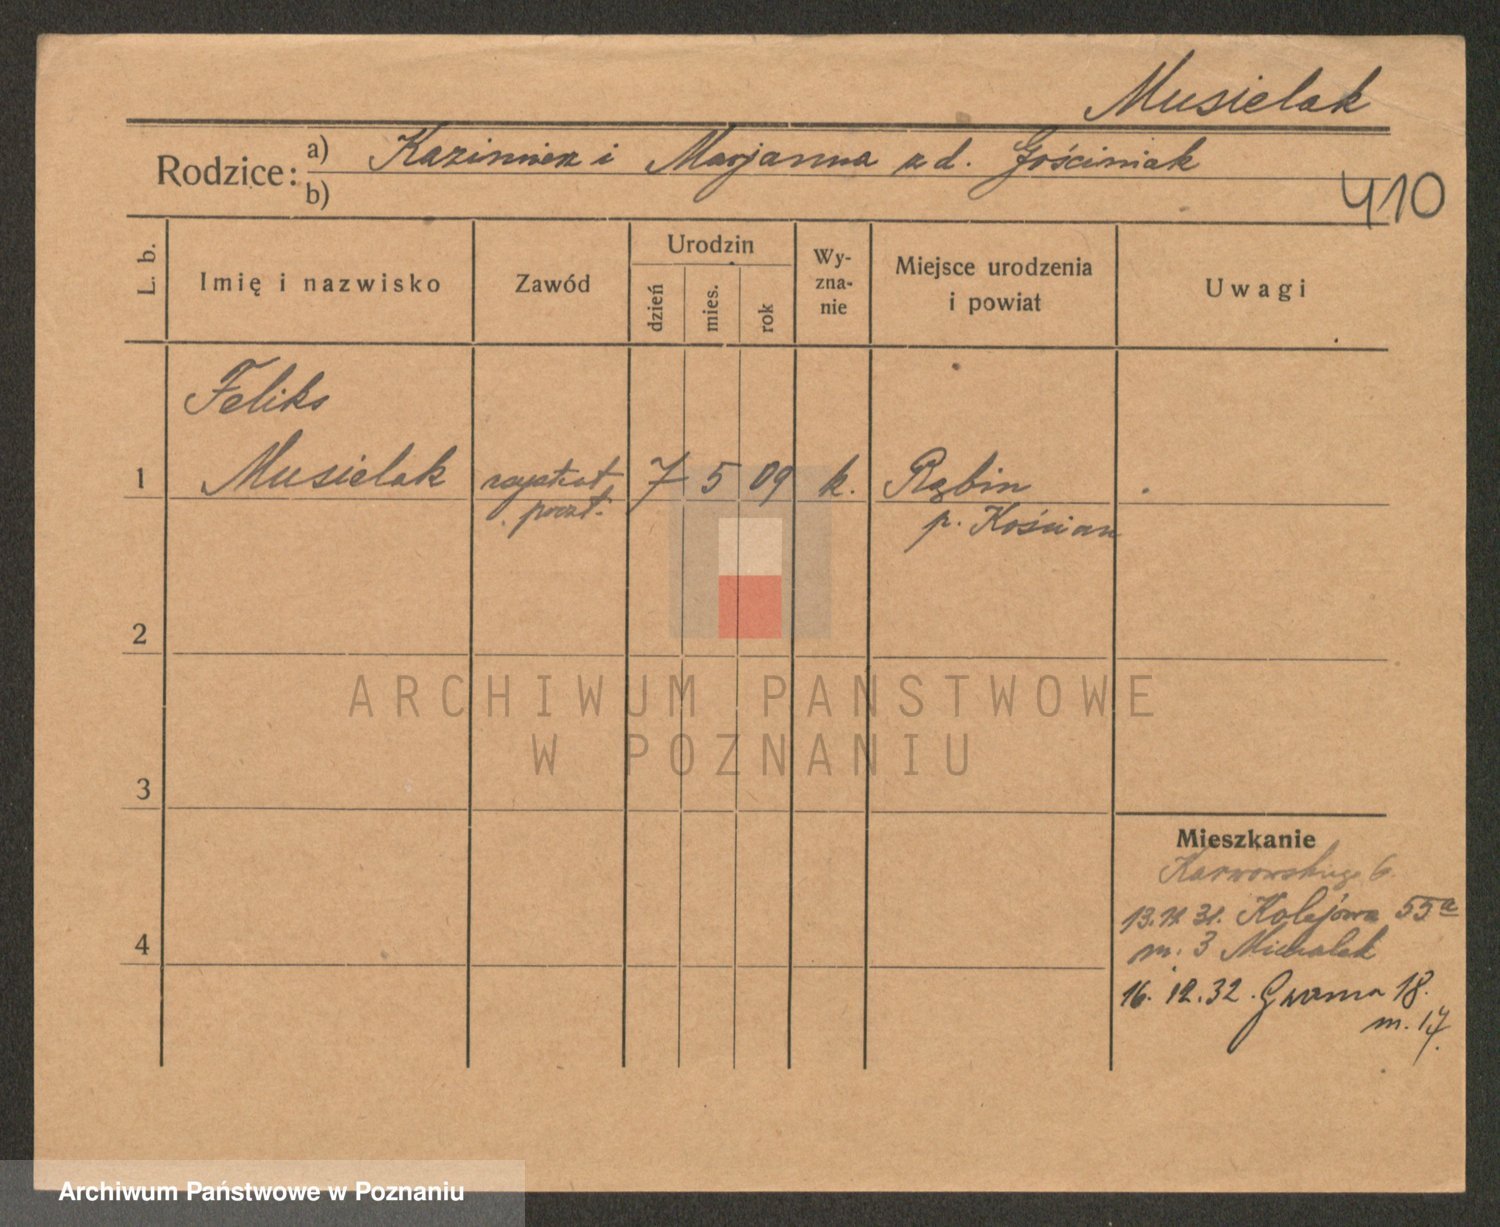 Musielak
Rodzice: a) Kazimierz i Marjanna z d. Gościniak
b)
410
L. b.
Imię i nazwisko
Zawód
Urodzin
dzień
mies.
rok
Wy-
zna-
nie
Miejsce urodzenia
i powiat
Uwagi
Feliks
1 Musielak 7 5 09 k. Rąbin
poczt. p. Kościan
2
ARCHIWUM PANSTWOWE
W POZNANIU
3
Mieszkanie
Karwowskiego 6
31. Kolejowa 55a
4
m. 3 Michalak
16. 12. 32. Gwarna 18.
m. 17.
Archiwum Państwowe w Poznaniu